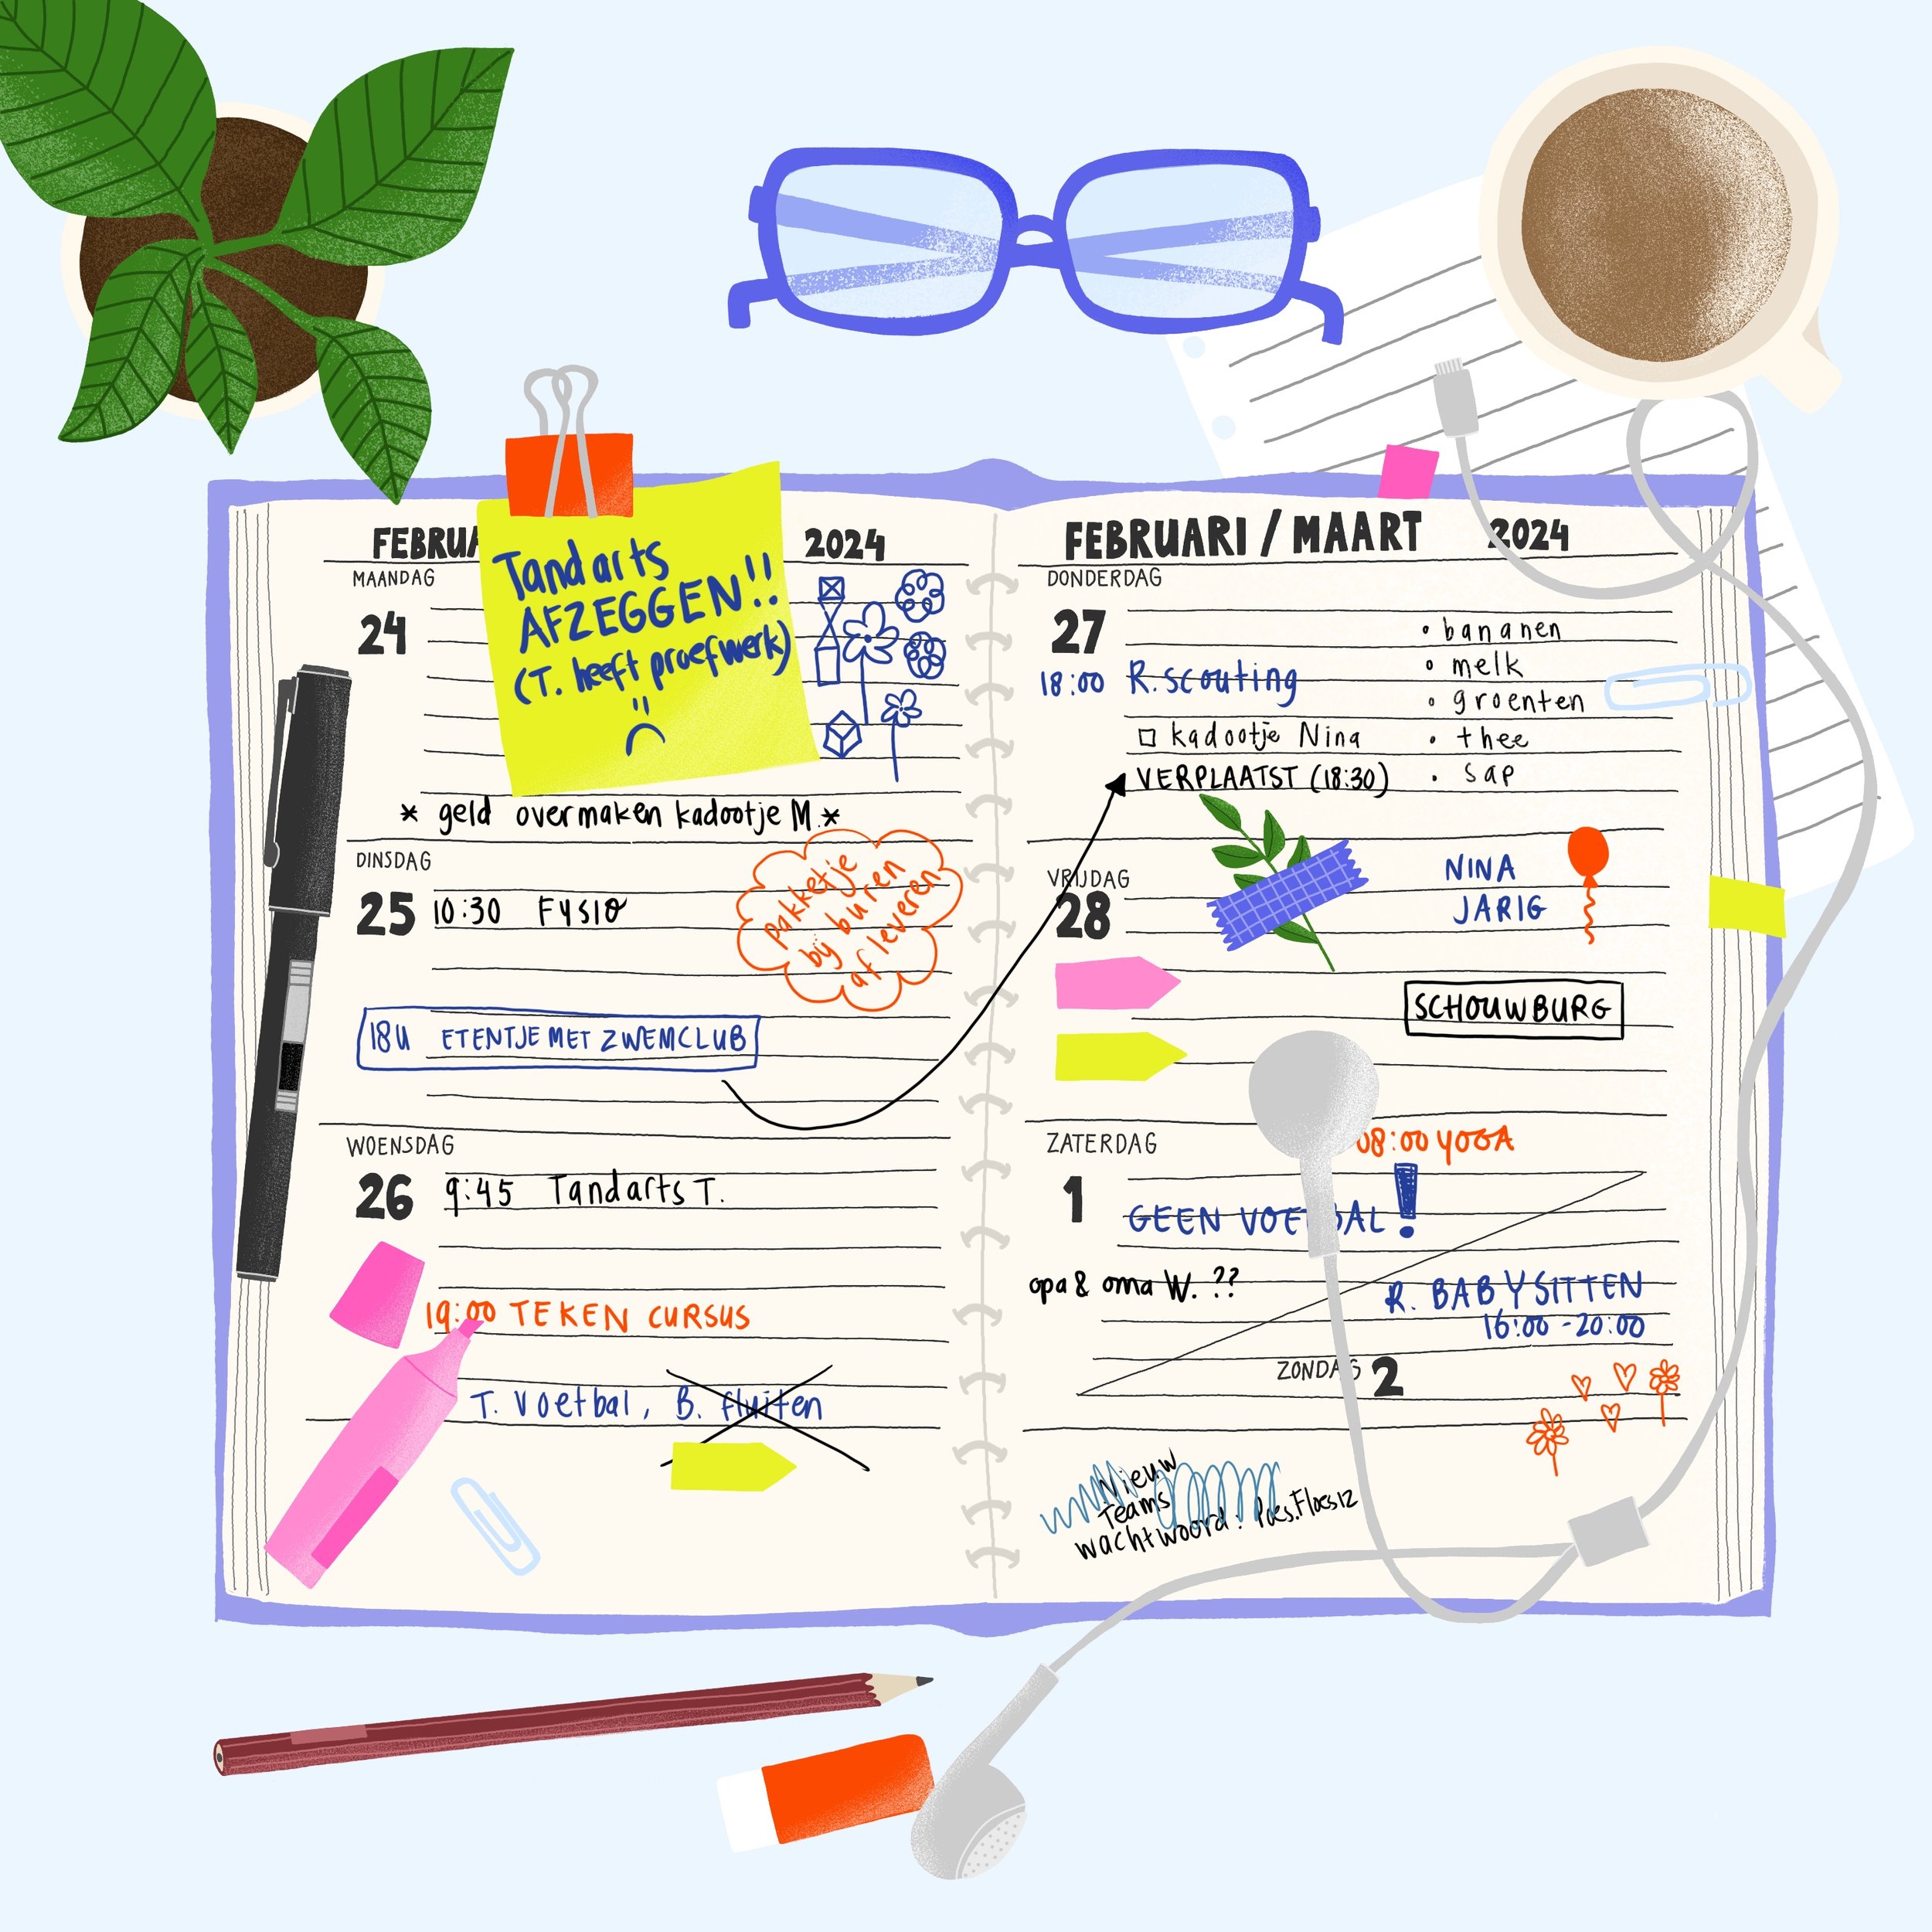 FEBRUA 2024
MAANDAG
24
Tandarts
AFZEGGEN!!
(T. heeft proefwerk)
* geld overmaken kadootje M.*
DINSDAG
25 10:30 FYSIO
pakketje
bij buren
afleveren
18U ETENTJE MET ZWEMCLUB
WOENSDAG
26 9:45 Tandarts T.
19:00 TEKEN CURSUS
T. Voetbal, B. fluiten
FEBRUARI / MAART 2024
DONDERDAG
27
18:00 R. scouting
☐ kadootje Nina
VERPLAATST (18:30)
• bananen
• melk
• groenten
• thee
• sap
VRIJDAG
28
NINA
JARIG
SCHOUWBURG
ZATERDAG
08:00 YOGA
1
GEEN VOE BAL!
opa & oma W. ??
R. BABYSITTEN
16:00 - 20:00
ZONDAG 2
Nieuw
Teams
wachtwoord: Poes.Floes12